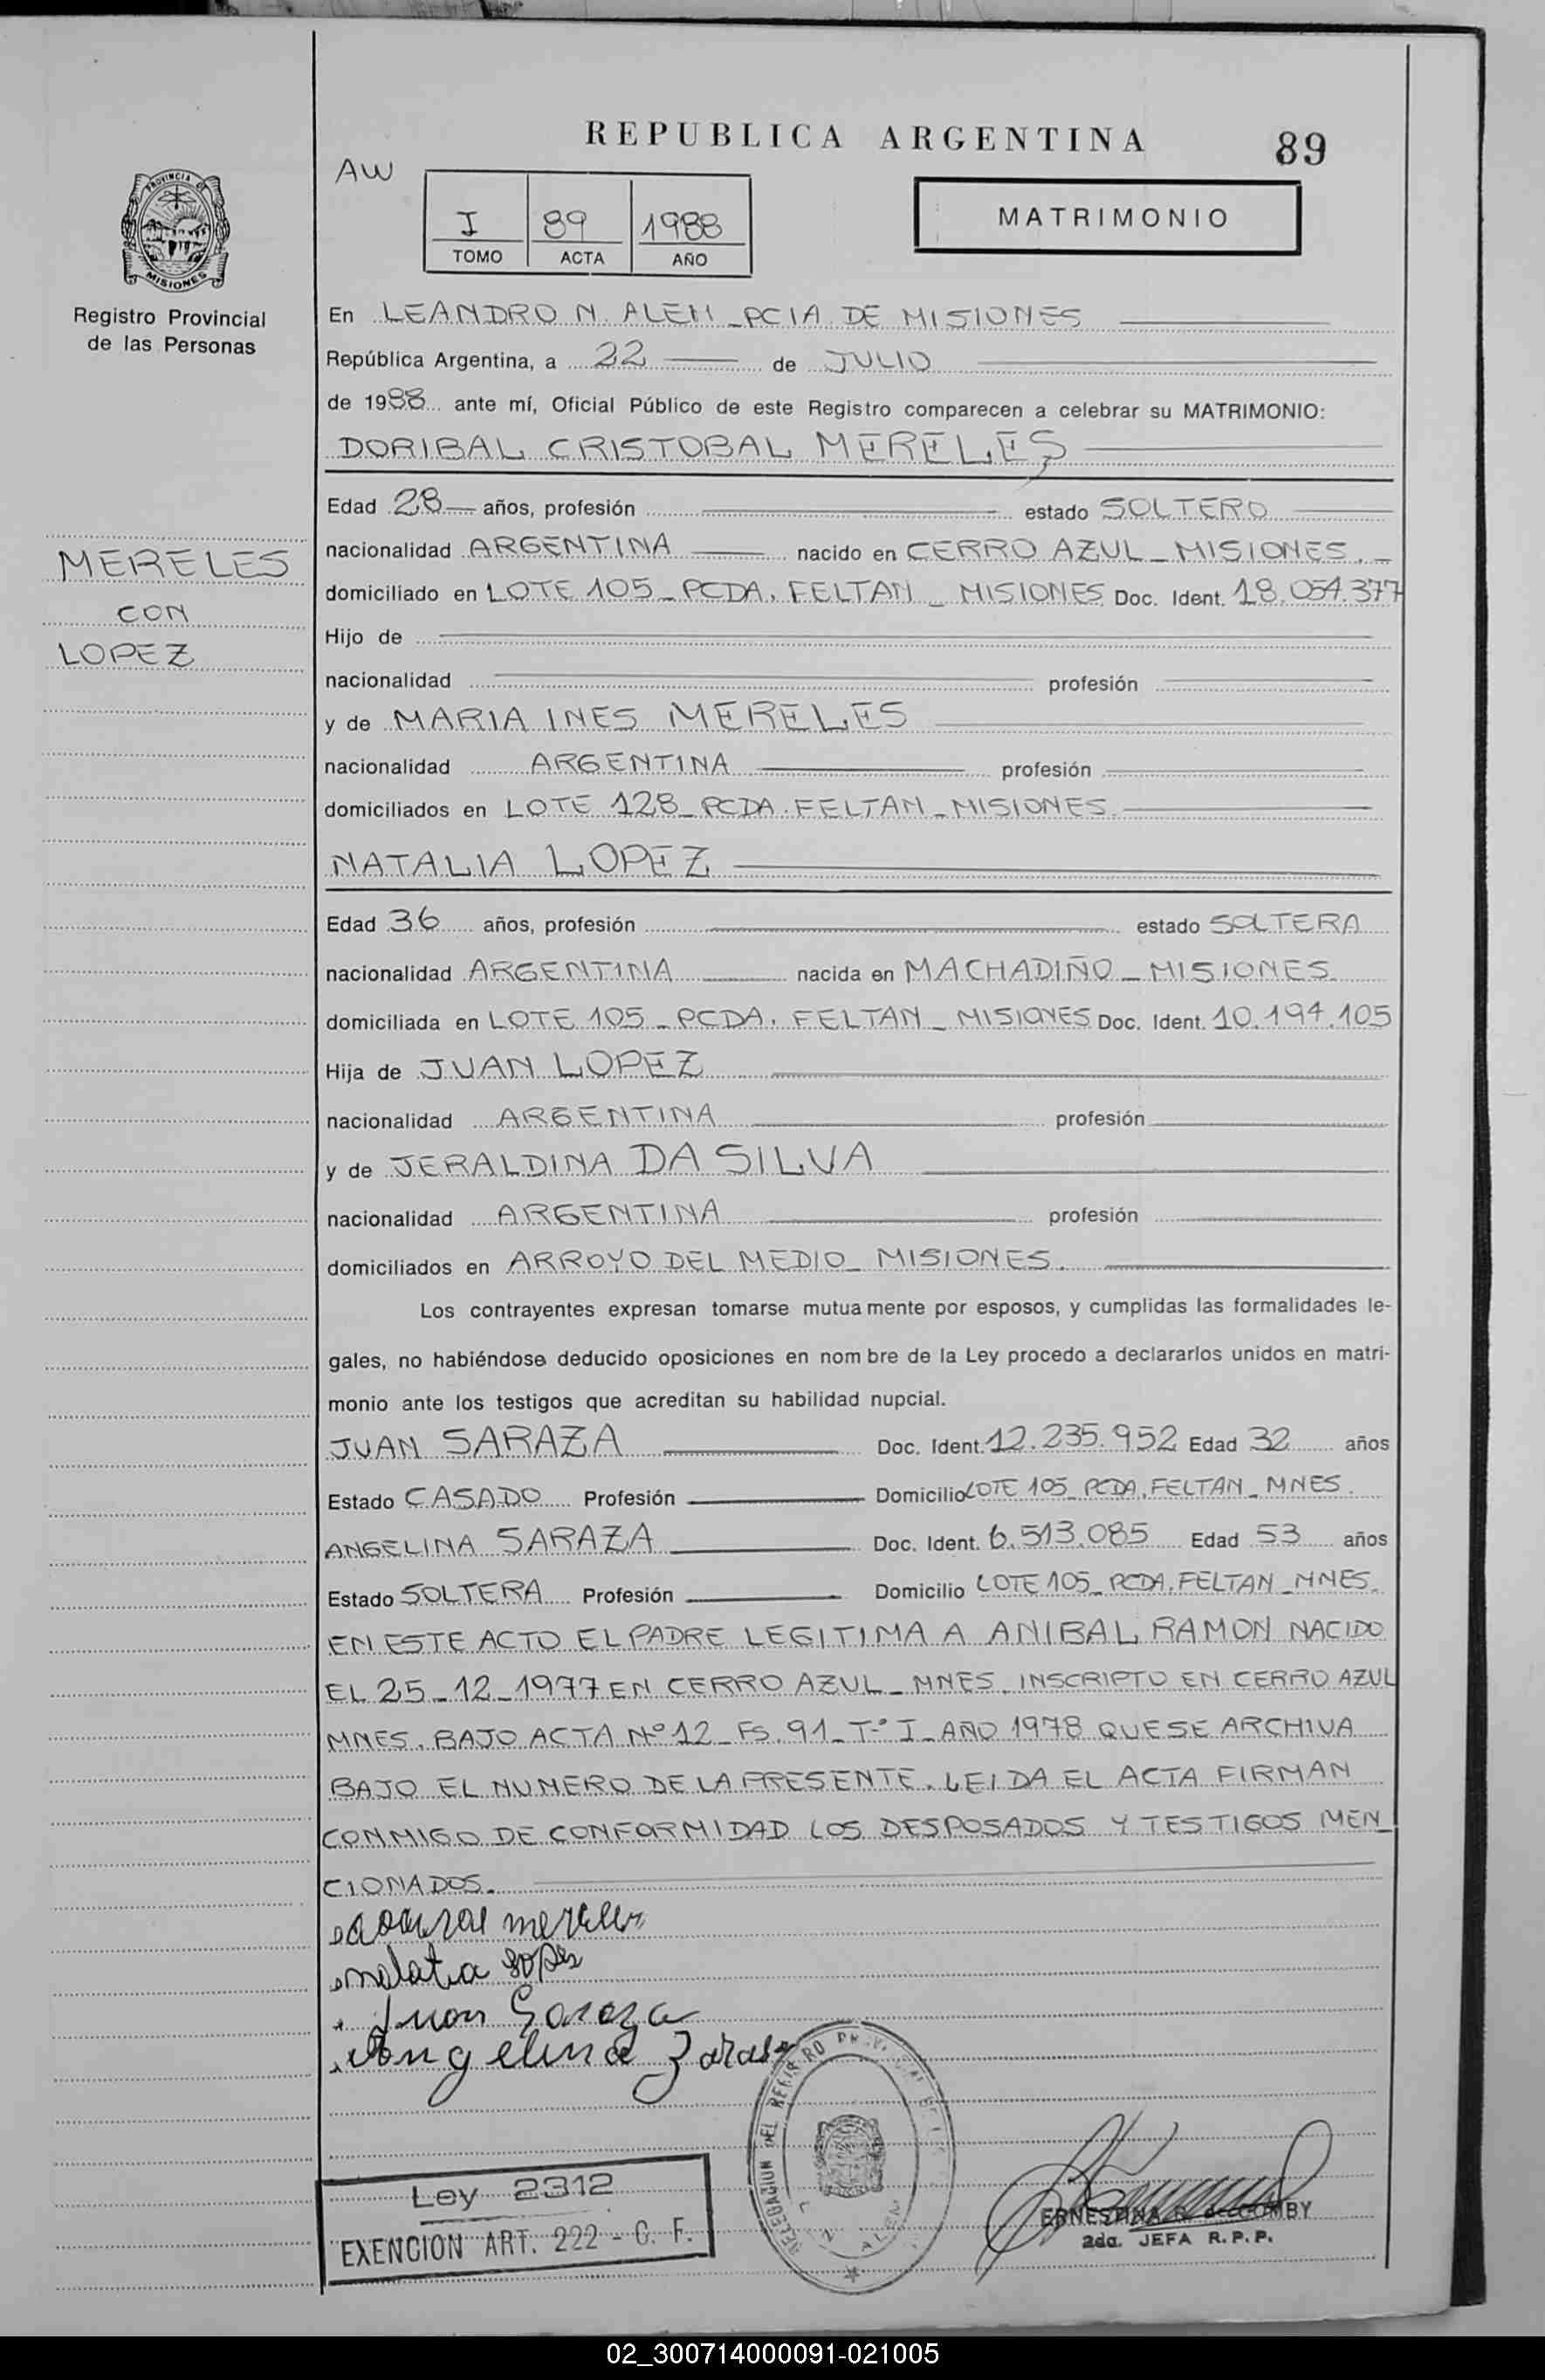 REPUBLICA ARGENTINA
89
AW
I
89
1988
TOMO
ACTA
AÑO
MATRIMONIO
PROVINCIA DE
MISIONES
Registro Provincial
de las Personas
En LEANDRO N. ALEM _ PCIA DE MISIONES
República Argentina, a 22 de JULIO
de 1988 ante mí, Oficial Público de este Registro comparecen a celebrar su MATRIMONIO:
DORIBAL CRISTOBAL MERELES
Edad 28 años, profesión estado SOLTERO
nacionalidad ARGENTINA nacido en CERRO AZUL _ MISIONES.
domiciliado en LOTE 105 _ PCDA. FELTAN _ MISIONES Doc. Ident. 18.054.377
Hijo de
nacionalidad profesión
y de MARIA INES MERELES
nacionalidad ARGENTINA profesión
domiciliados en LOTE 128 _ PCDA. FELTAN _ MISIONES.
MERELES
CON
LOPEZ
NATALIA LOPEZ
Edad 36 años, profesión estado SOLTERA
nacionalidad ARGENTINA nacida en MACHADIÑO _ MISIONES
domiciliada en LOTE 105 _ PCDA. FELTAN _ MISIONES Doc. Ident. 10.194.105
Hija de JUAN LOPEZ
nacionalidad ARGENTINA profesión
y de JERALDINA DA SILVA
nacionalidad ARGENTINA profesión
domiciliados en ARROYO DEL MEDIO _ MISIONES.
Los contrayentes expresan tomarse mutuamente por esposos, y cumplidas las formalidades le-
gales, no habiéndose deducido oposiciones en nombre de la Ley procedo a declararlos unidos en matri-
monio ante los testigos que acreditan su habilidad nupcial.
JUAN SARAZA Doc. Ident. 12.235.952 Edad 32 años
Estado CASADO Profesión Domicilio LOTE 105 _ PCDA. FELTAN _ MNES.
ANGELINA SARAZA Doc. Ident. 6.513.085 Edad 53 años
Estado SOLTERA Profesión Domicilio LOTE 105 _ PCDA. FELTAN _ MNES.
EN ESTE ACTO EL PADRE LEGITIMA A ANIBAL RAMON NACIDO
EL 25 _ 12 _ 1977 EN CERRO AZUL _ MNES. INSCRIPTO EN CERRO AZUL
MNES. BAJO ACTA Nº 12 _ Fs. 91 _ Tº I _ AÑO 1978 QUE SE ARCHIVA
BAJO EL NUMERO DE LA PRESENTE. LEIDA EL ACTA FIRMAN
CONMIGO DE CONFORMIDAD LOS DESPOSADOS Y TESTIGOS MEN_
CIONADOS.
mereles
natalia Lopes
Juan Saraza
Angelina Zaraza
DELEGACION DEL REGISTRO
Ley 2312
EXENCION ART. 222 - C. F.
ERNESTINA R. de COMBY
2da. JEFA R.P.P.
02_300714000091-021005